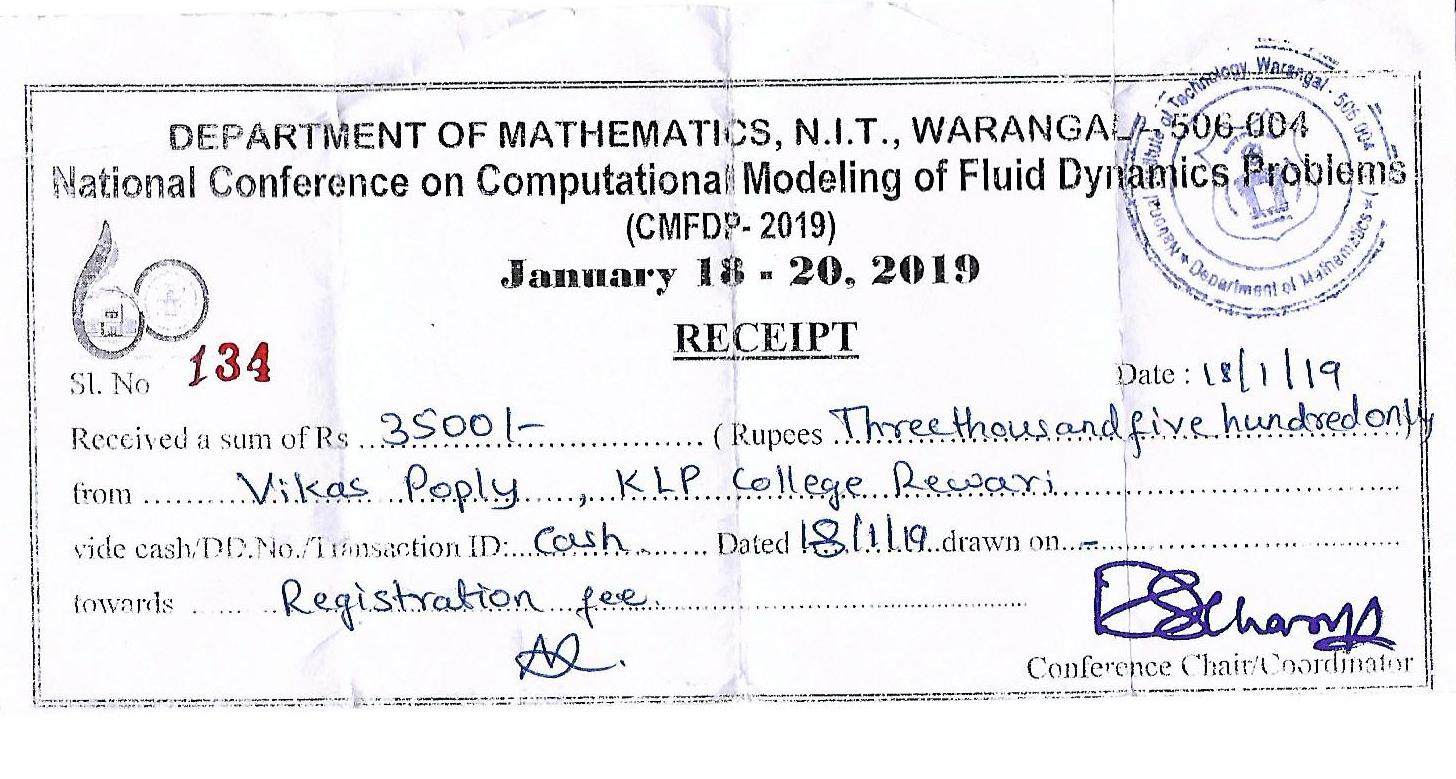 DEPARTMENT OF MATHEMATICS, N.I.T., WARANGAL - 506 004
National Conference on Computational Modeling of Fluid Dynamics Problems
(CMFDP- 2019)
January 18 - 20, 2019
RECEIPT
National Institute of Technology, Warangal - 506 004
★ Department of Mathematics ★
60
Sl. No 134
Date : 18/1/19
Received a sum of Rs ...3500/-... ( Rupees Three thousand five hundred only)
from ... Vikas Poply, KLP College Rewari
vide cash/DD.No./Transaction ID:... Cash ... Dated 18/1/19 drawn on... -
towards ... Registration fee.
Conference Chair/Coordinator